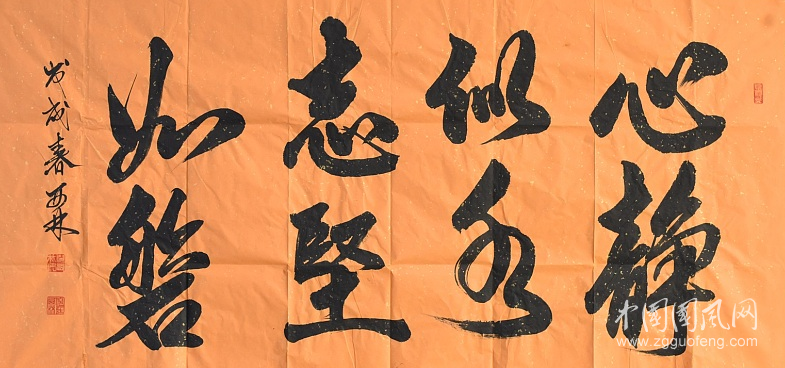 心静
似水
志坚
如磐
戊戌春西林
中国国风网
www.zgguofeng.com